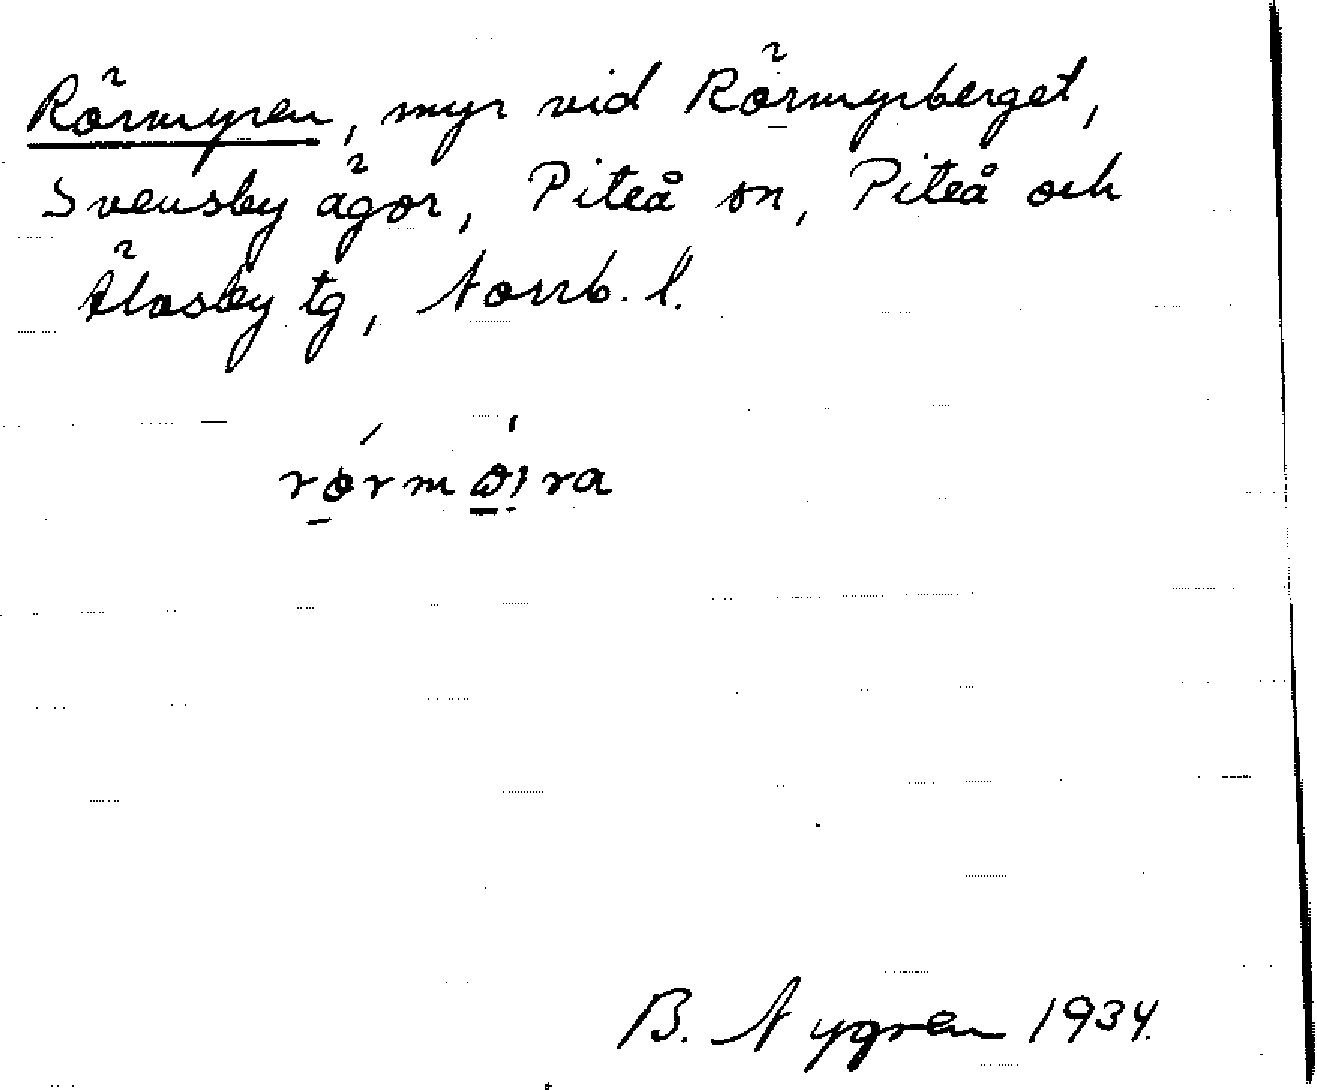 Rörmyren, myr vid Rörmyrberget,
Svensby ägor, Piteå sn, Piteå och
Älvsby tg, Norrb. l.
B. Nygren 1934.